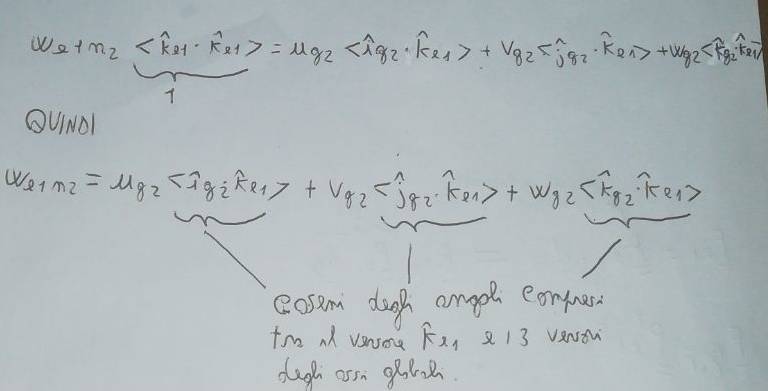 w_{e1n2} <k̂_{e1} · k̂_{e1}> = u_{g2} <î_{g2} · k̂_{e1}> + v_{g2} <ĵ_{g2} · k̂_{e1}> + w_{g2} <k̂_{g2} · k̂_{e1}>
1
QUINDI
w_{e1n2} = u_{g2} <î_{g2} · k̂_{e1}> + v_{g2} <ĵ_{g2} · k̂_{e1}> + w_{g2} <k̂_{g2} · k̂_{e1}>
coseni degli angoli compresi
tra il versore k̂_{e1} e i 3 versori
degli assi globali.